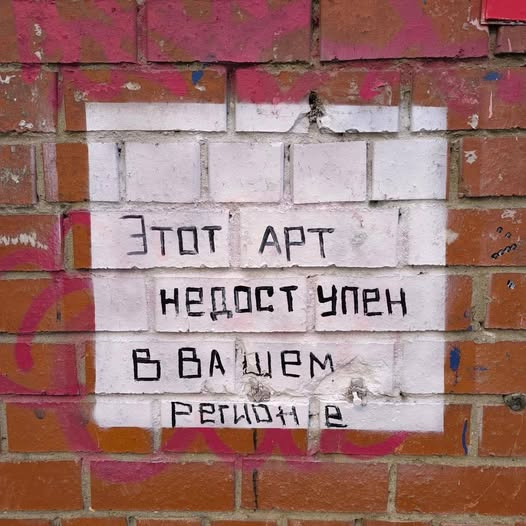 Этот арт
недоступен
в вашем
регионе